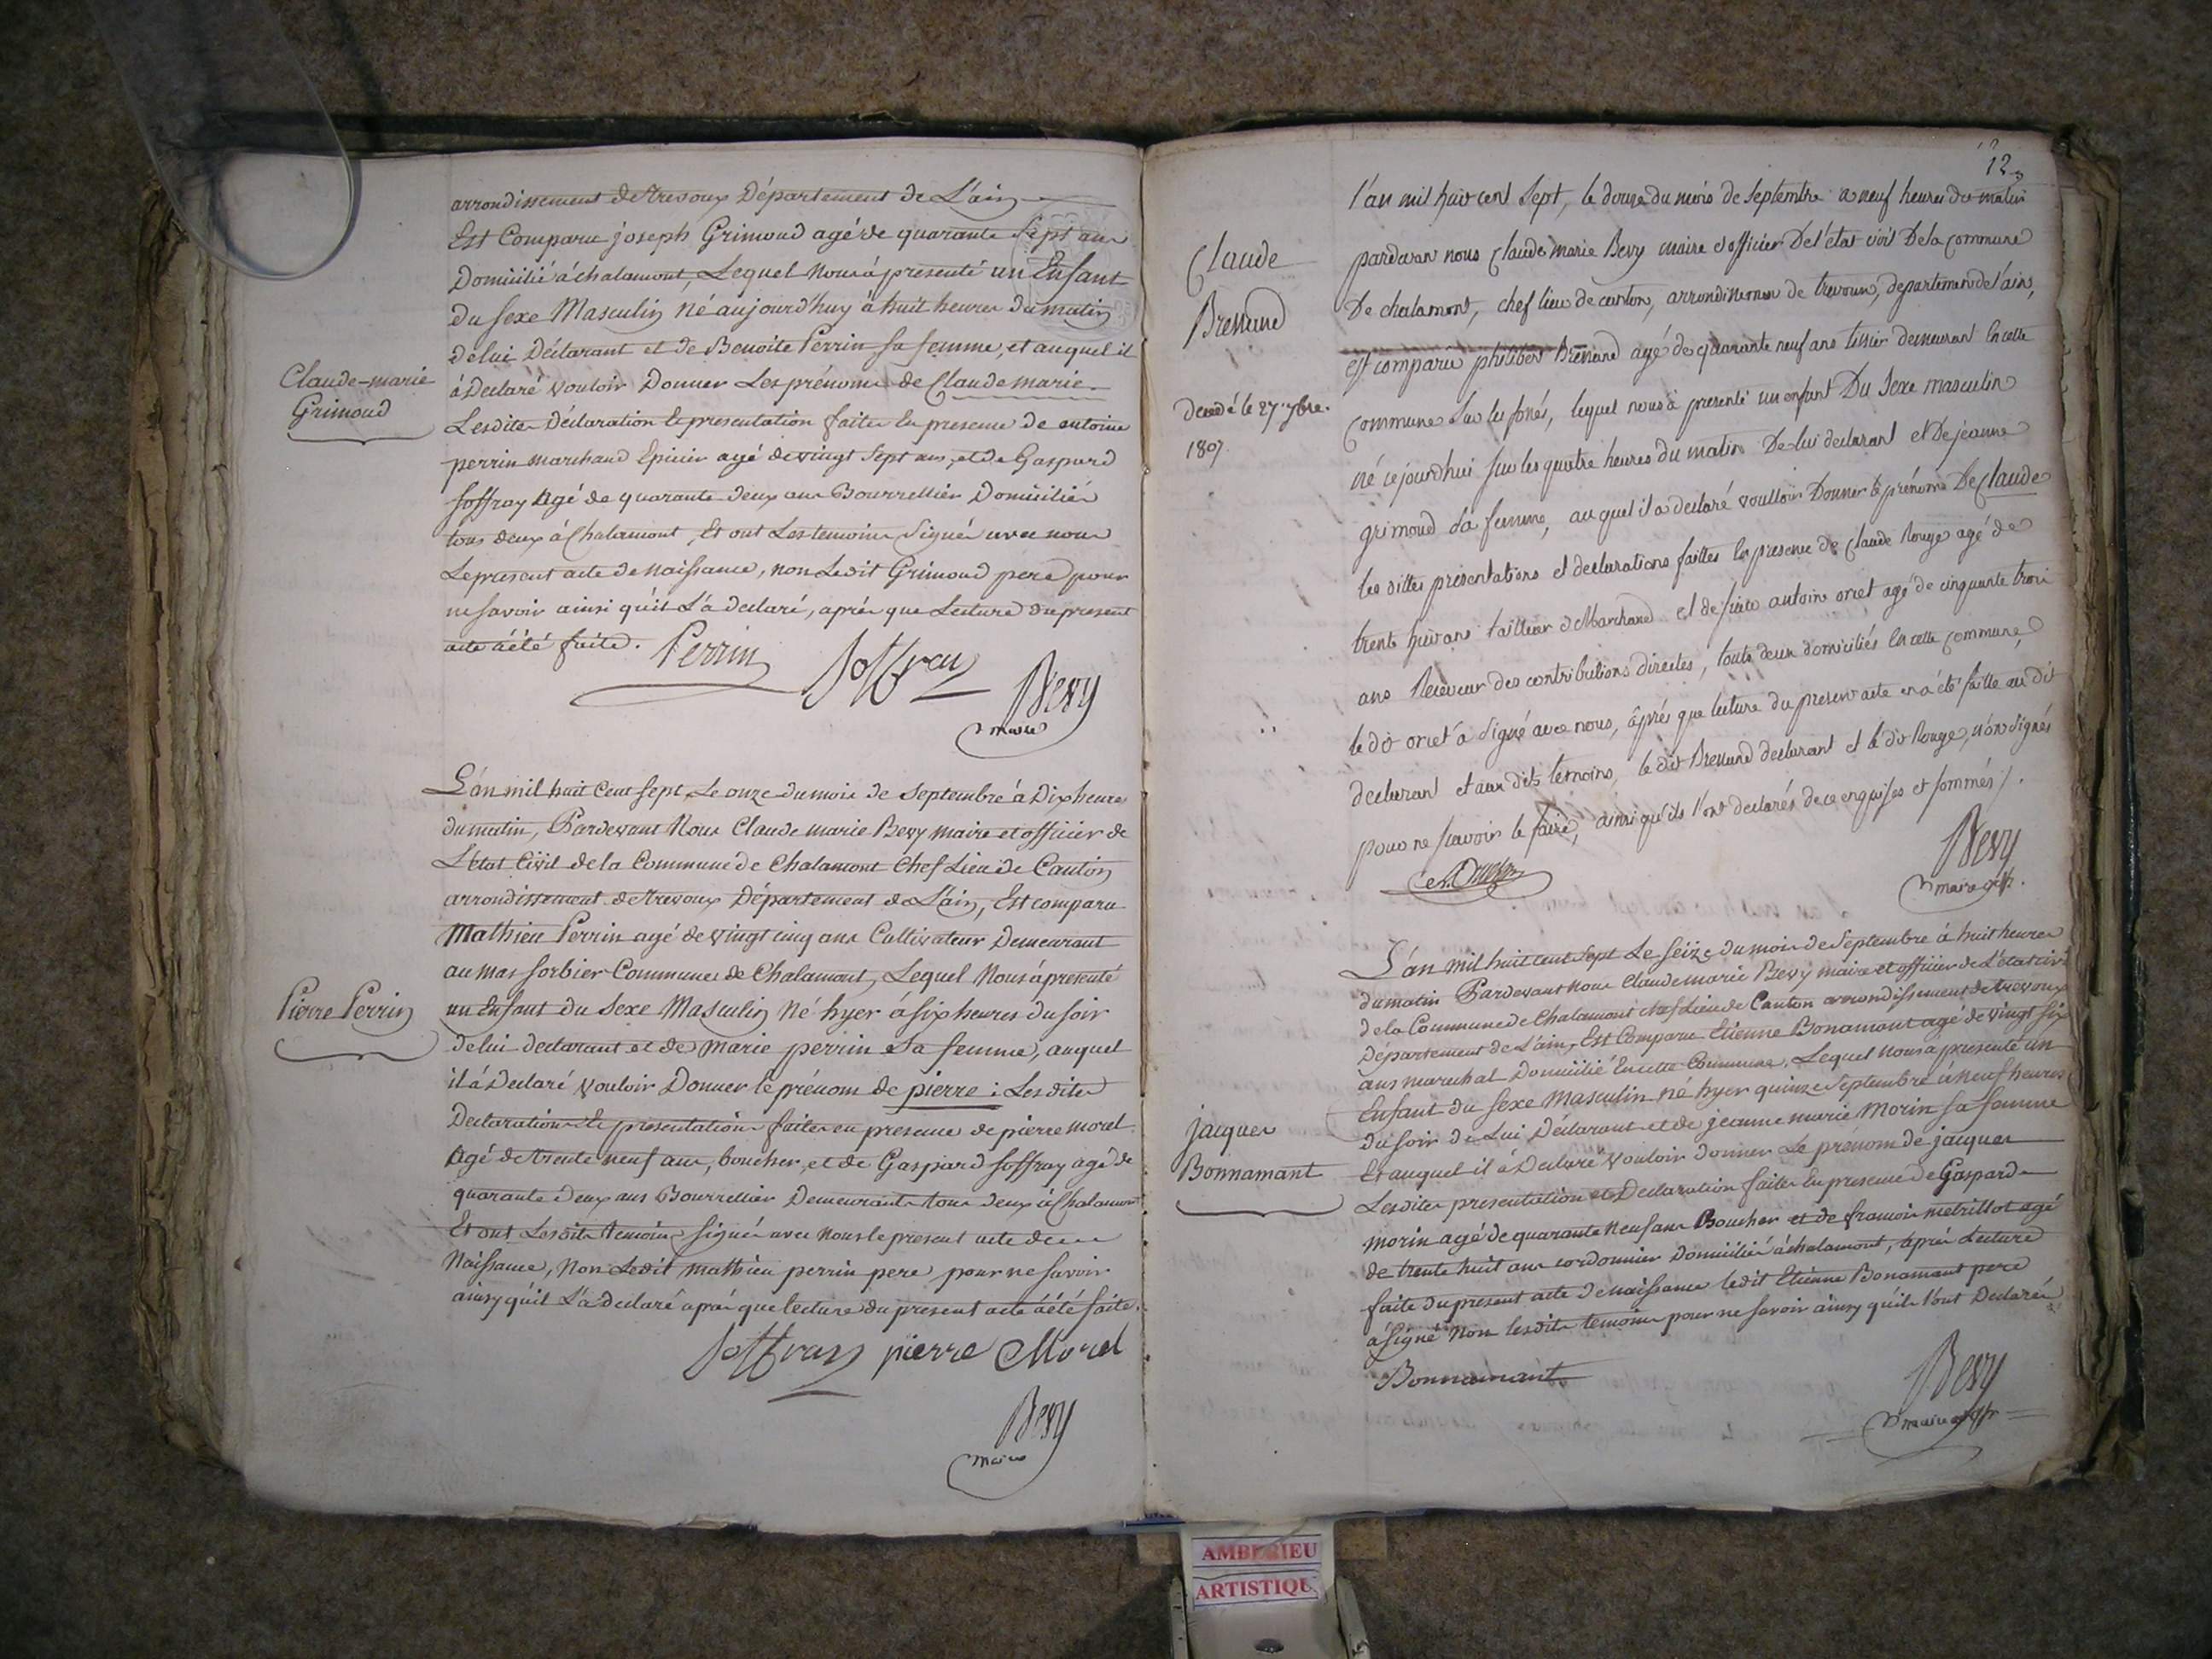 arrondissement de trevoux Département de L'ain
Est Comparu joseph Grimoud agé de quarante Sept ans
Domicilié à chalamont, Lequel Nous à presenté un Enfant
du sexe Masculin Né aujourd'huy à huit heures du matin
de lui Déclarant et de Benoite Perrin sa femme, et auquel il
à Declaré vouloir Donner Les prénoms de Claude marie
Claude-marie
Grimoud
Lesdites Déclaration et presentation faites en presence de antoine
perrin marchand Epicier agé de vingt Sept ans, et de Gaspard
soffray Agé de quarante deux ans Bourrellier Domiciliés
tous deux à Chalamont, Et ont Les temoins Signés avec nous
Le present acte de Naissance, non Ledit Grimoud pere pour
ne savoir ainsi qu'il L'à declaré, après que Lecture du present
acte à été faite.
Perrin
Soffray
Bevy
maire
L'an mil huit Cent sept, Le onze du mois de Septembre à Dix heures
du matin, Pardevant Nous Claude marie Bevy maire et officier de
L'état Civil de la Commune de Chalamont Chef Lieu de Canton
arrondissement de trevoux Département de L'ain, Est comparu
Mathieu Perrin agé de vingt cinq ans Cultivateur Demeurant
au mas sorbier Commune de Chalamont, Lequel Nous à presenté
Pierre Perrin
un Enfant du Sexe Masculin Né hyer à six heures du soir
de lui declarant et de Marie perrin Sa femme, auquel
il à Declaré vouloir Donner le prénom de pierre : Lesdites
Declaration et presentation faites en presence de pierre morel
Agé de trente neuf ans, boucher, et de Gaspard soffray agé de
quarante deux ans Bourrellier Demeurants tous deux à Chalamont
Et ont Lesdits temoins signés avec Nous le present acte de
Naissance, Non Ledit mathieu perrin pere pour ne savoir
ainsy qu'il L'à declaré après que lecture du present acte à été faite.
Soffray pierre Morel
Bevy
maire
12
l'an mil huit cent Sept, le douze du mois de septembre a neuf heures du matin
Claude
Bressand
pardevan nous Claude marie Bevy maire et officier De l'état civil De la Commune
De chalamont, chef lieu de canton, arrondissemen de trevoux, departemen de l'ain,
est comparu philibert Bressand agé de quarante neuf ans tissier demeurant En cette
decedé le 27 7bre.
1807
Commune Sur les fossés, lequel nous à presenté un enfant Du Sexe masculin
né cejourdhui sur les quatre heures du matin De lui declarant et De jeanne
grimoud sa femme, auquel il a declaré voulloir Donner le prénom De Claude
les dittes présentations et declarations faittes En presence de Claude Rouge agé de
trente huit ans tailleur et Marchand et de antoine oriet agé de cinquante trois
ans Receveur des contributions directes, touts deux domiciliés En cette Commune,
le dit oriet à Signé avec nous, après que lecture du present acte en à été faitte au dit
declarant et aux dits temoins, le dit Bressand declarant et le dit Rouge, n'on Signés
pour ne scavoir le faire, ainsi qu'ils l'ont declarés de ce enquises et sommés.
Bevy
maire
L'an mil huit cent Sept Le seize du mois de Septembre à huit heures
du matin Pardevant nous Claude marie Bevy maire et officier de L'état civil
de la Commune de Chalamont chef Lieu de Canton arrondissement de trevoux
Département de L'ain, Est Comparu Etienne Bonamant agé de vingt six
ans marechal Domicilié En cette Commune, Lequel nous à presenté un
Enfant du sexe Masculin né hyer quinze Septembre à Neuf heures
jacques
Bonnamant
du soir de Lui Déclarant et de jeanne marie Morin sa femme
Et auquel il à Declaré vouloir donner Le prénom de jacques
Lesdites presentation et Declaration faites En presence de Gaspard
morin agé de quarante Neuf ans Boucher et de francois metrillot agé
de trente huit ans cordonnier Domiciliés à chalamont, après Lecture
faite du present acte de Naissance ledit Etienne Bonamant pere
à signé Non lesdits temoins pour ne savoir ainsy qu'ils l'ont Declarés
Bonnamant
Bevy
maire
AMBERIEU
ARTISTIQU